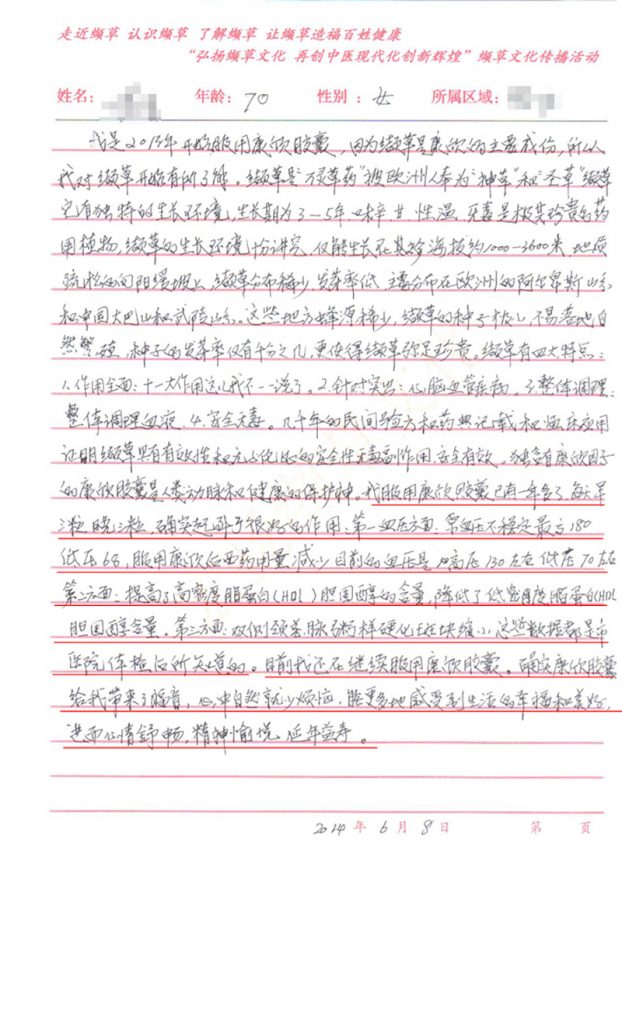 走近缬草 认识缬草 了解缬草 让缬草造福百姓健康
“弘扬缬草文化 再创中医现代化创新辉煌”缬草文化传播活动
姓名： 年龄：70 性别：女 所属区域：
我是2013年开始服用康欣胶囊，因为缬草是康欣的主要成份，所以
我对缬草开始有所了解。缬草是“万灵草药”被欧洲人奉为“神草”和“圣草”缬草
它有独特的生长环境，生长期为3-5年 味辛甘、性温、无毒是极其珍贵的药
用植物，缬草的生长环境 讲究，仅能生长在 海拔约1000-3600米、地质
疏松的向阳缓坡上，缬草分布稀少，发芽率低、主要分布在欧洲的阿尔卑斯山系
和中国大巴山和武陵山系。这些地方蜂源稀少，缬草的种子 不易落地自
然繁殖，种子的发芽率仅有千分之几，更使得缬草弥足珍贵。缬草有四大特点：
1.作用全面：十一大作用 我不一一说了。2.针对突出：心脑血管疾病。3.整体调理：
整体调理血液。4.安全无毒。几千年的民间验方和药典记载和临床应用
证明缬草具有有效性和无以伦比的安全性无毒副作用安全有效。独含有康欣因子
的康欣胶囊是人类动脉和健康的保护神。我服用康欣胶囊已有一年了，每天早
3粒晚3粒，确实起到了很好的作用、第一血压方面，常血压不稳定最高180
低压68，服用康欣后西药用量减少目前的血压是 高压130左右 低压70左右
第二方面：提高了高密度脂蛋白(HDL)胆固醇的含量，降低了低密度脂蛋白(HDL
胆固醇含量。第三方面：双侧颈总脉粥样硬化斑块缩小，这些数据都是市
医院体检后所知道的。目前我还在继续服用康欣胶囊。确实康欣胶囊
给我带来了福音，心中自然就少烦恼，能更多地感受到生活的幸福和美好，
进而心情舒畅，精神愉悦，延年益寿。
2014年6月8日 第 页